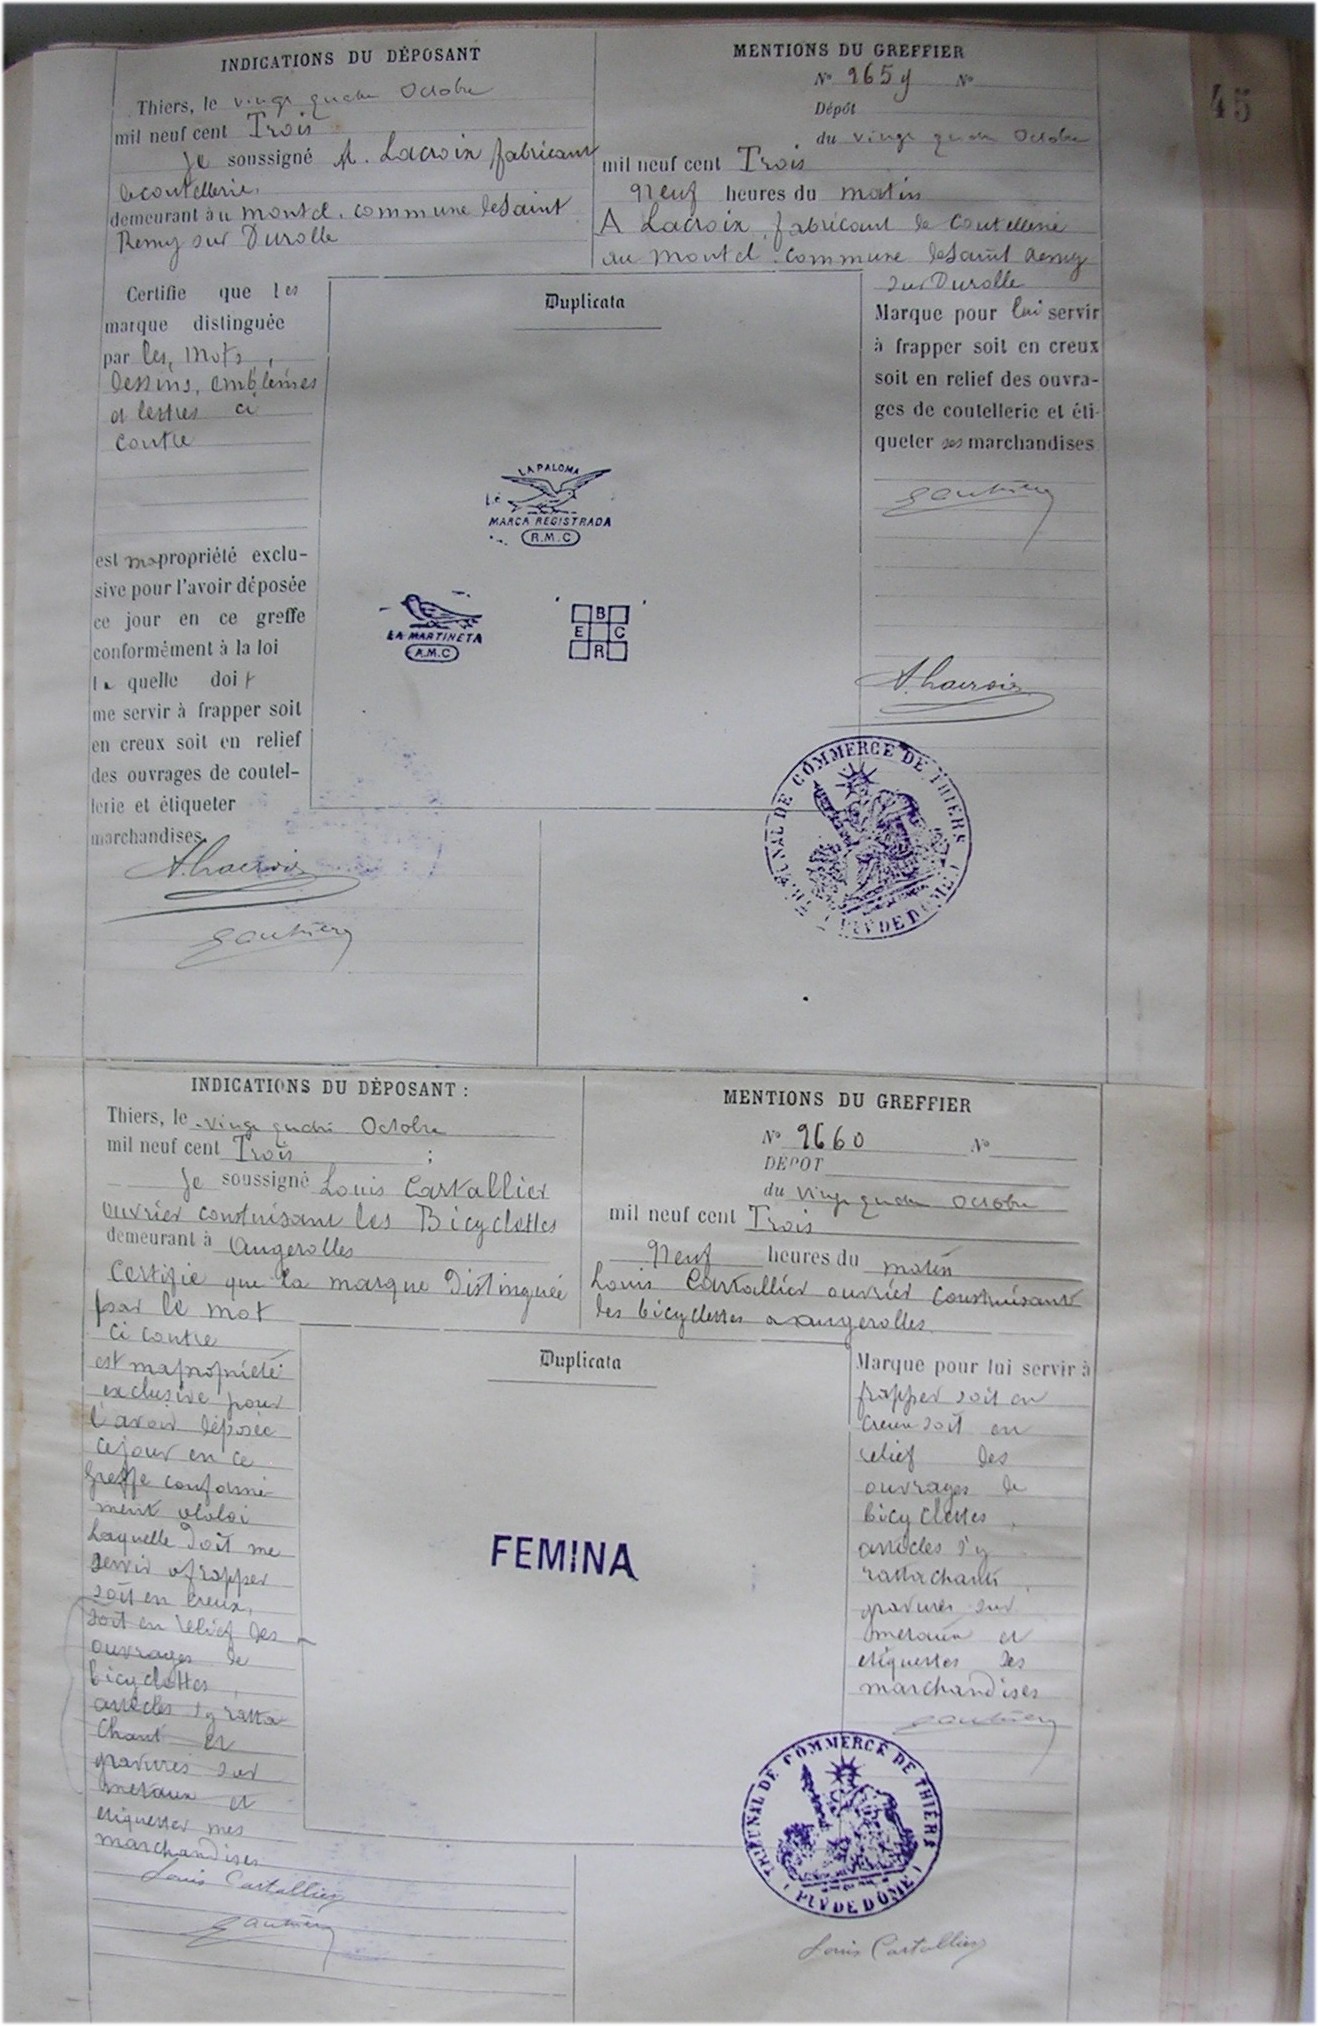 45
INDICATIONS DU DÉPOSANT
Thiers, le vingt quatre Octobre
mil neuf cent Trois
Je soussigné A. Lacroix fabricant
de coutellerie
demeurant à au montel. commune de Saint
Remy sur Durolle
Certifie que les
marque distinguée
par les, mots,
dessins, emblèmes
et lettres ci
contre
est ma propriété exclu-
sive pour l'avoir déposée
ce jour en ce greffe
conformément à la loi
la quelle doit
me servir à frapper soit
en creux soit en relief
des ouvrages de coutel-
lerie et étiqueter
marchandises
A. Lacroix
Gauthier
MENTIONS DU GREFFIER
N° 9659 N°
Dépôt
du vingt quatre Octobre
mil neuf cent Trois
Neuf heures du matin
A Lacroix, fabricant de coutellerie
au montel. commune de Saint Remy
sur Durolle
Duplicata
LA PALOMA
MARCA REGISTRADA
R.M.C
LA MARTINETA
A.M.C
B
E C
R
Marque pour lui servir
à frapper soit en creux
soit en relief des ouvra-
ges de coutellerie et éti-
queter ses marchandises
Gauthier
A. Lacroix
TRIBUNAL DE COMMERCE DE THIERS
(PUY DE DOME)
INDICATIONS DU DÉPOSANT :
Thiers, le vingt quatre Octobre
mil neuf cent Trois ;
Je soussigné Louis Cartallier
ouvrier construisant les Bicyclettes
demeurant à Augerolles
Certifie que la marque Distinguée
par le mot
ci contre
est ma propriété
exclusive pour
l'avoir déposée
ce jour en ce
Greffe conformé
ment à la loi
Laquelle Doit me
servir à frapper
soit en creux,
soit en relief des
ouvrages de
bicyclettes,
articles s'y ratta
chant et
gravures sur
metaux et
etiquetter mes
marchandises
Louis Cartallier
Gauthier
MENTIONS DU GREFFIER
N° 9660 N°
DÉPOT
du vingt quatre Octobre
mil neuf cent Trois
Neuf heures du matin
Louis Cartallier ouvrier construisant
des bicyclettes à augerolles
Duplicata
FEMINA
Marque pour lui servir à
frapper soit en
creux soit en
relief des
ouvrages de
bicyclettes,
articles s'y
rattachants,
gravures sur
metaux et
etiquetter ses
marchandises
Gauthier
TRIBUNAL DE COMMERCE DE THIERS
(PUY DE DOME)
Louis Cartallier